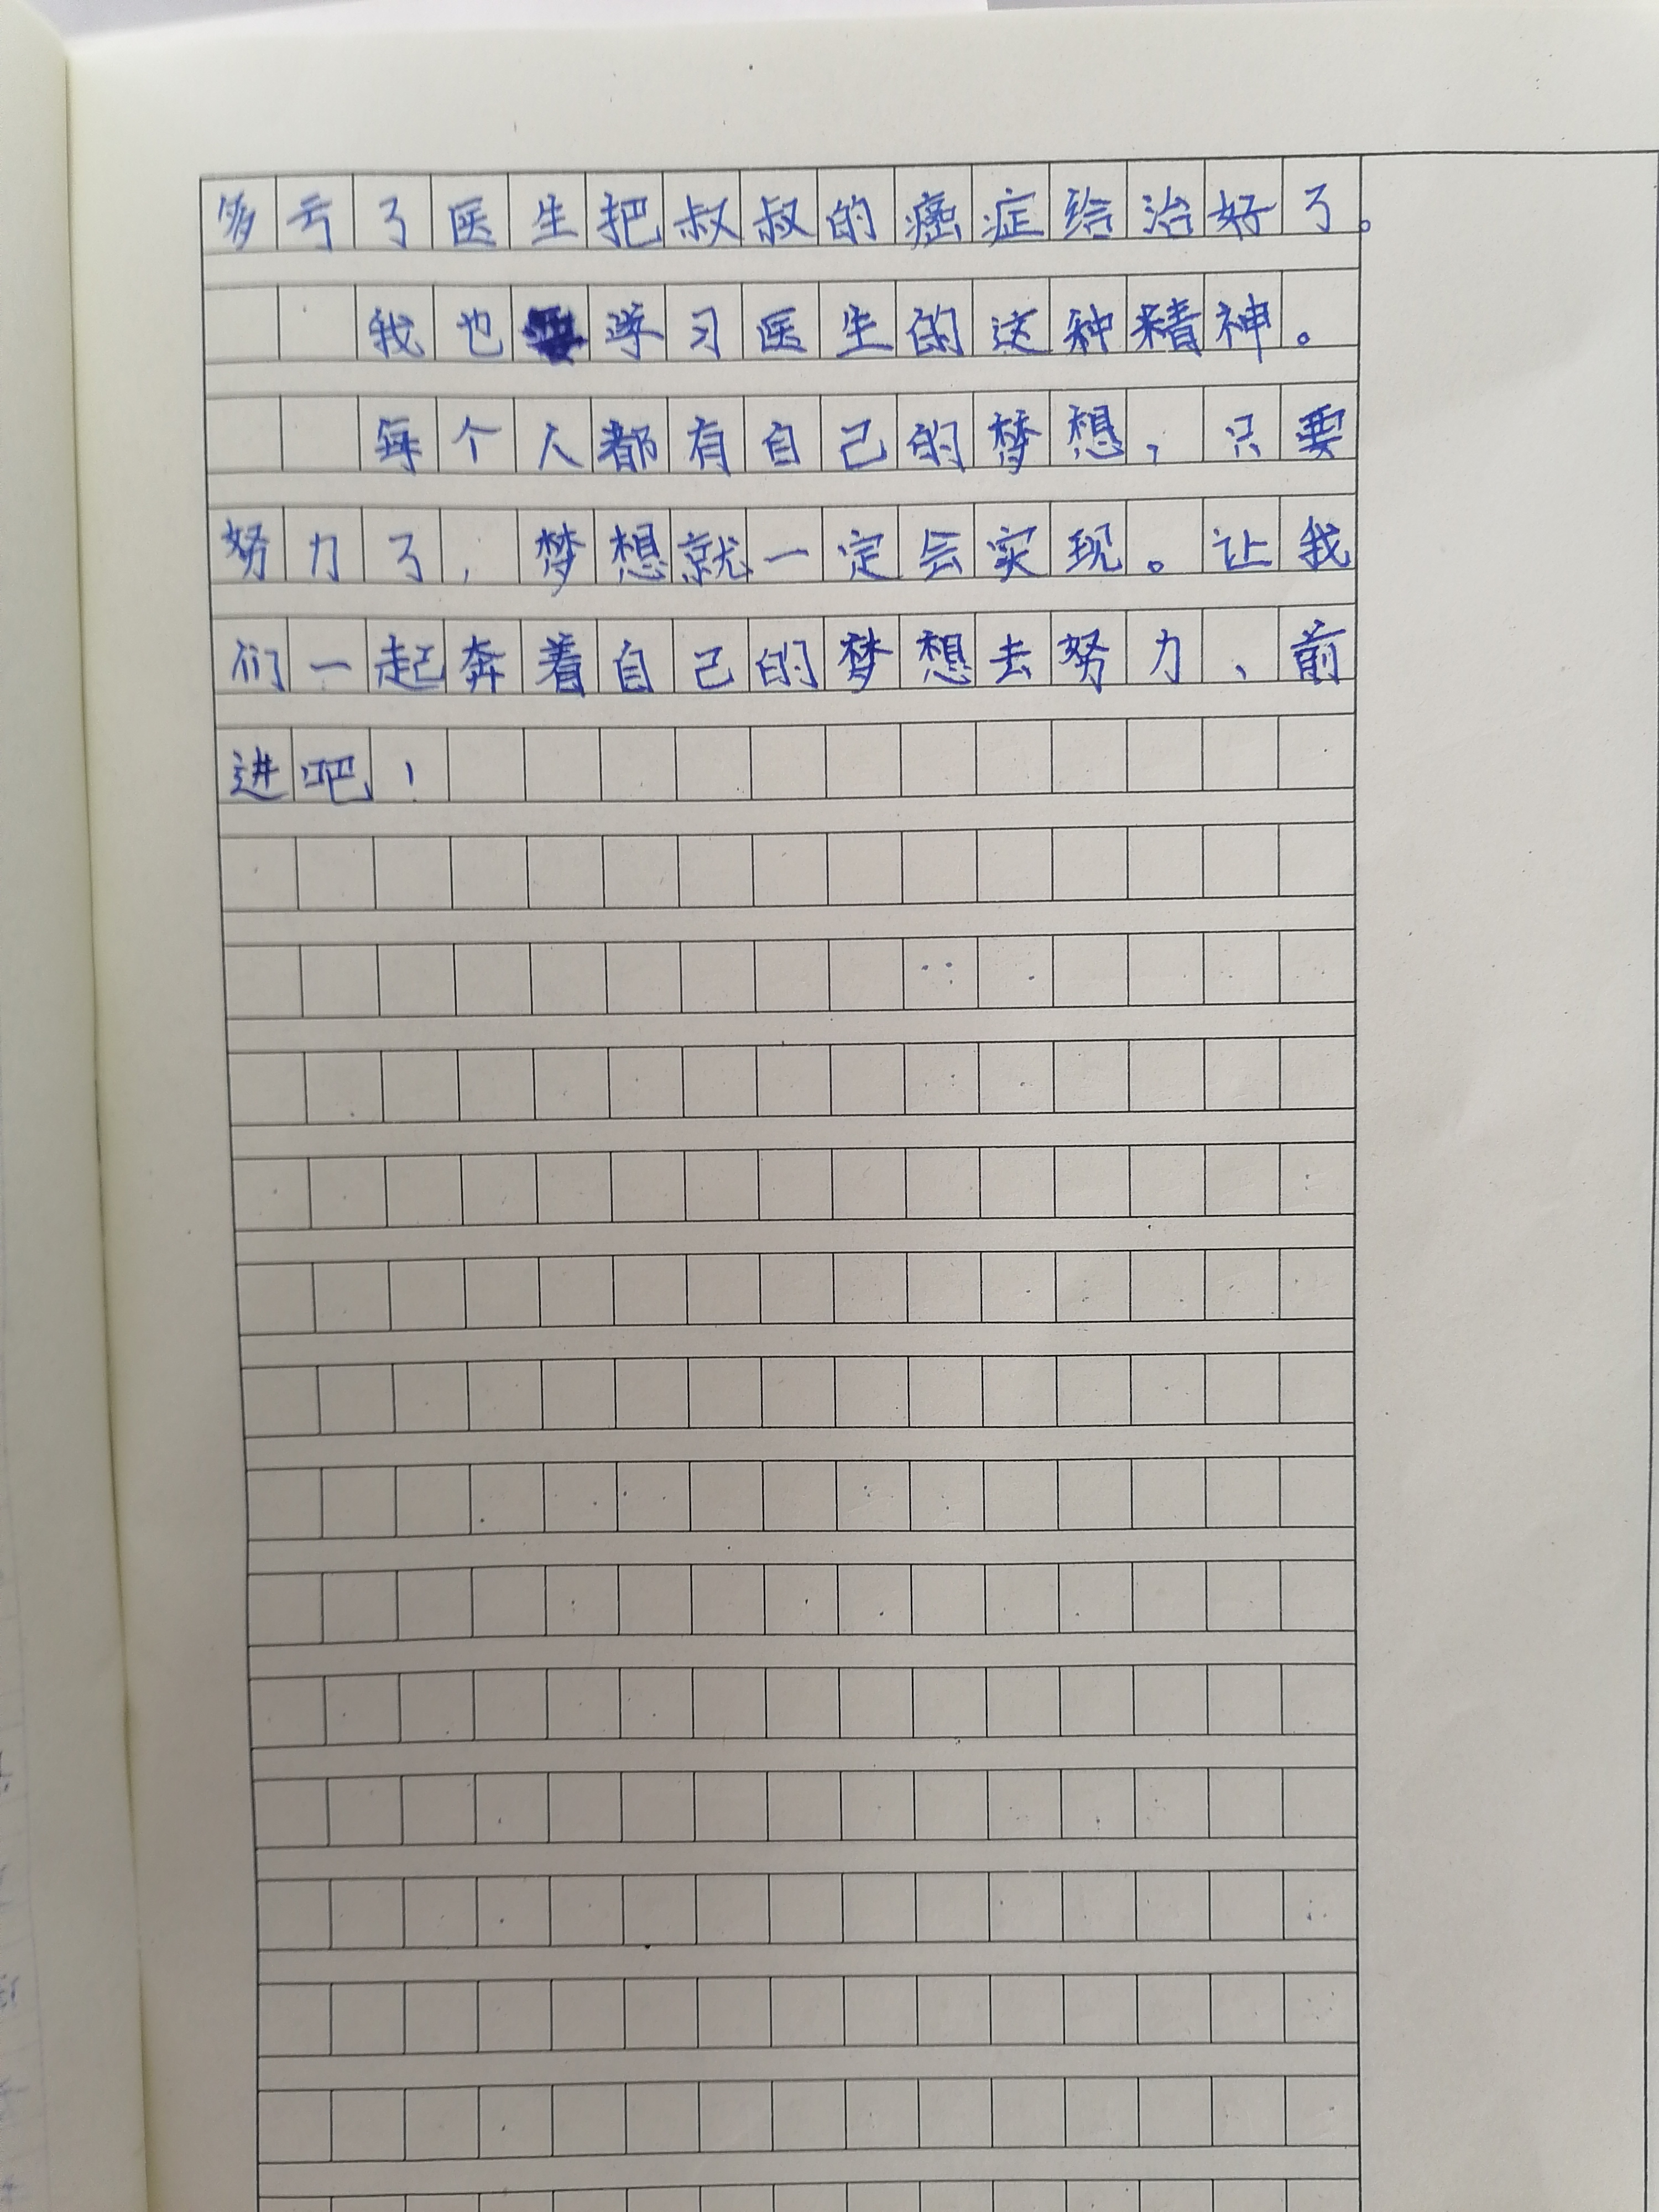 多亏了医生把叔叔的癌症给治好了。
我也学习医生的这种精神。
每个人都有自己的梦想，只要
努力了，梦想就一定会实现。让我
们一起奔着自己的梦想去努力、前
进吧！